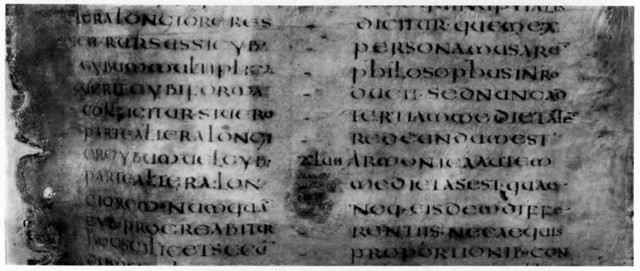 TERA LONGIORE RES
RURSUS SI CYB;
CYBUM MULTIPLICA
UERIT CYBI FORMA
CONFICITUR · SI UERO
PARTE ALTERA LONGI
ORE CYBUM UEL CYB;
PARTE ALTERA LON
GIOREM · NUMQUA
CYB; PROCREABITUR
DICITUR · QUEM EX
PERSONA
PHILOSOPHUS INRO
DUCIT · SED NUNC AD
TERTIAM MEDIETATE
REDEUNDUM EST ·
ARMONICA AUTEM
MEDIETAS EST · QUAE
NEQ · EISDEM DIFFE
RENTIIS · NEC AEQUIS
PROPORTIONIB · CON